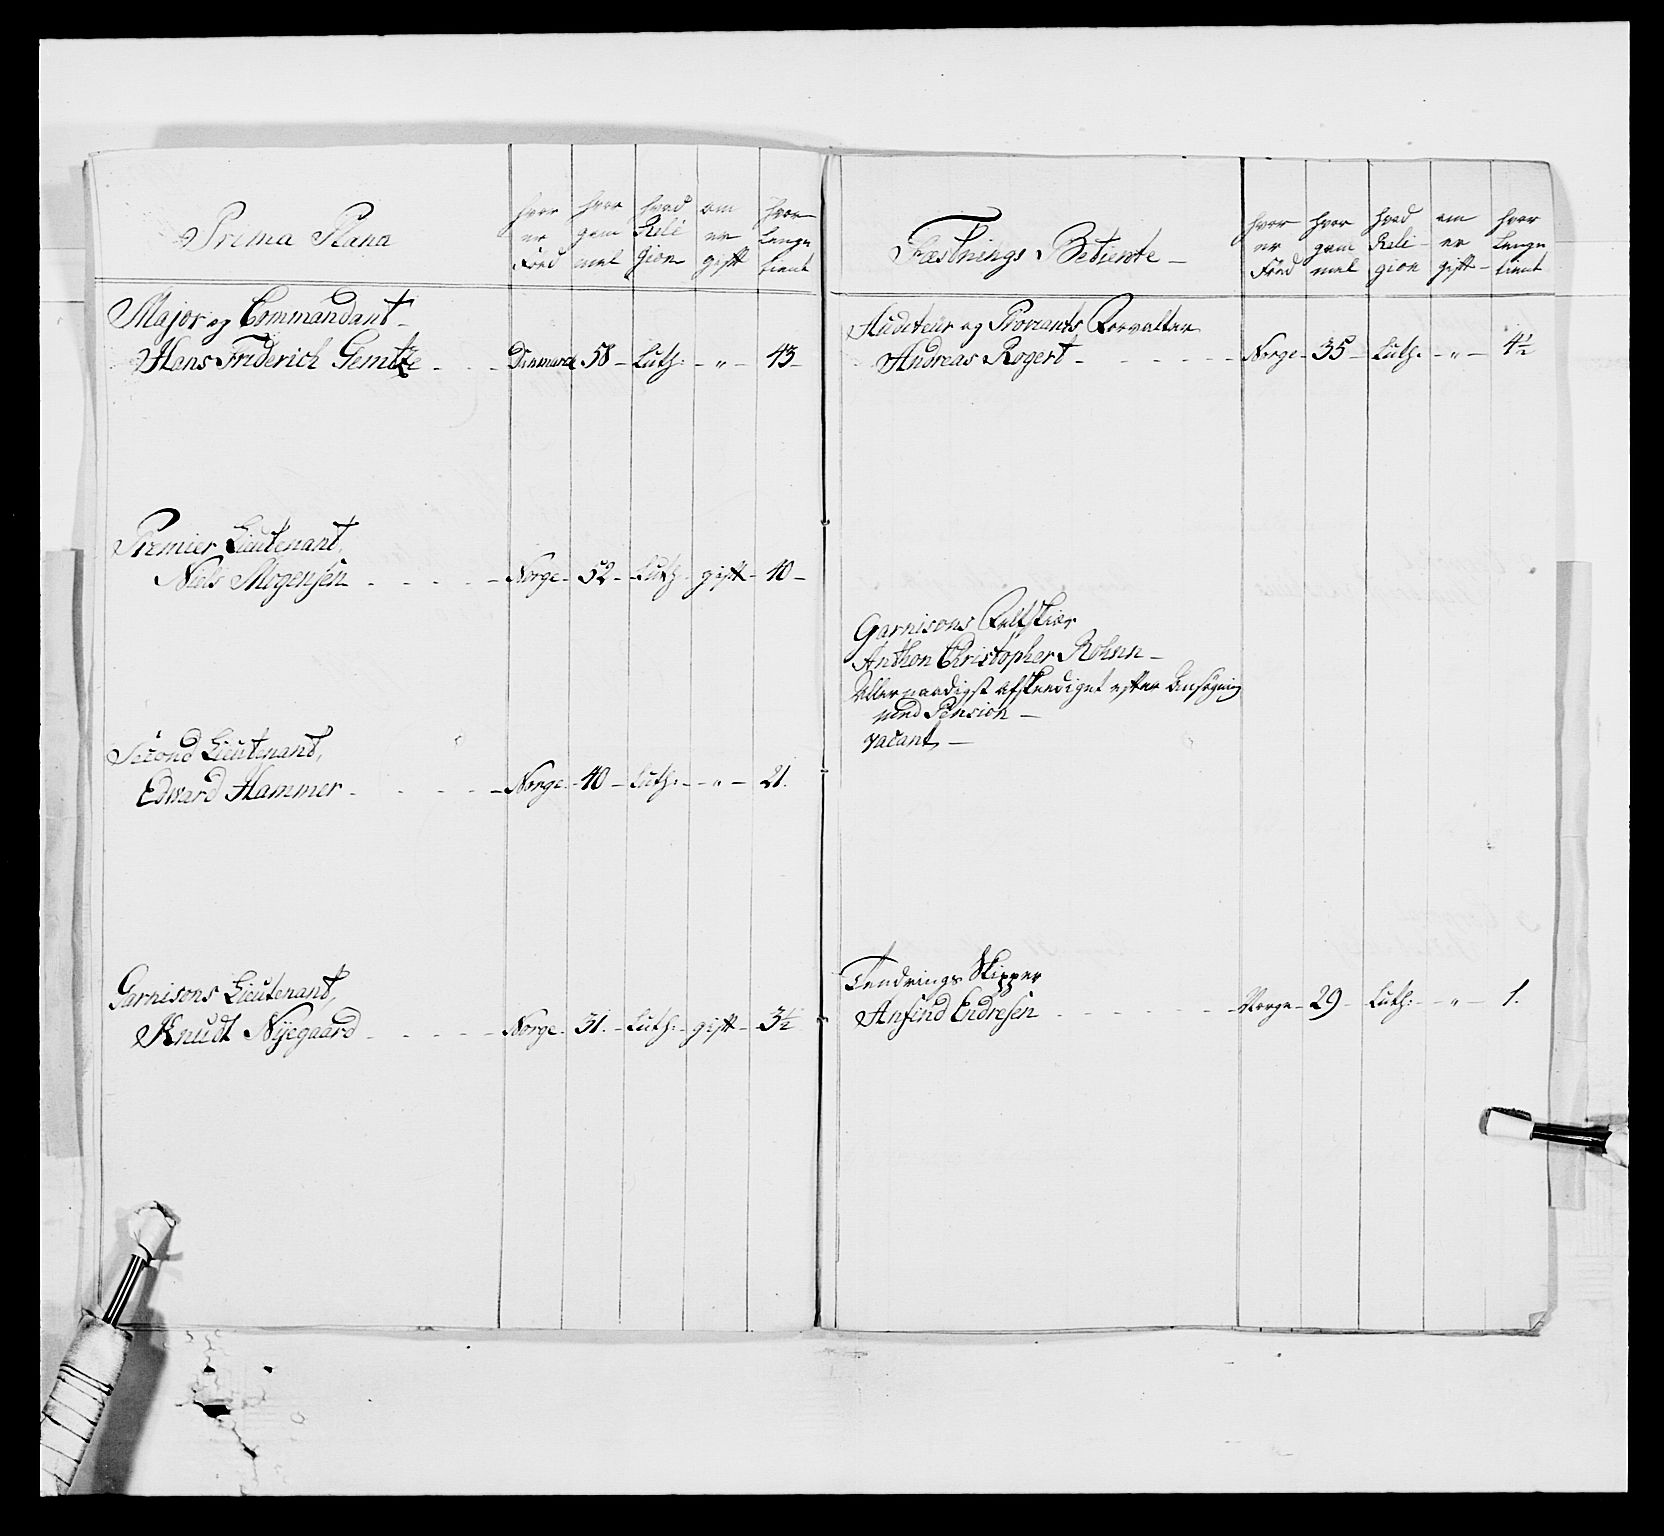 Prima Plana
hvor er Föed
hvor gam mel
hvad Reli gion
om er gift
hvor lenge tient
Major og Commandant
Hans Friderich Gemtze - - Danmarck 58 - Luth: - " - 43 -
Premier Lieutenant,
Niels Mogensen - - - - - Norge - 52 - Luth - gift - 40 -
Second Lieutenant,
Edward Hammer - - - - Norge - 40 - Luth: - " - 21.
Garnisons Lieutenant,
Knudt Nÿegaard - - - - - Norge - 31. - Luth: - gift - 3½
Fæstnings Betiente -
hvor er Föed
hvor gam mel
hvad Reli- gion
om er gift -
hvor lenge tient
Auditeur og Proviants Forvalter
Andreas Rogert - - - - - Norge - 35 - Luth: - " - 4½
Garnisons Feltskiær
Anthon Christopher Rohnn -
Allernaadigst afskeediget efter Ansögning
med Pension -
vacant, -
Tendrings Skipper
Anfind Endresen - - - - - Norge - 29 - Luth: - " - 1.